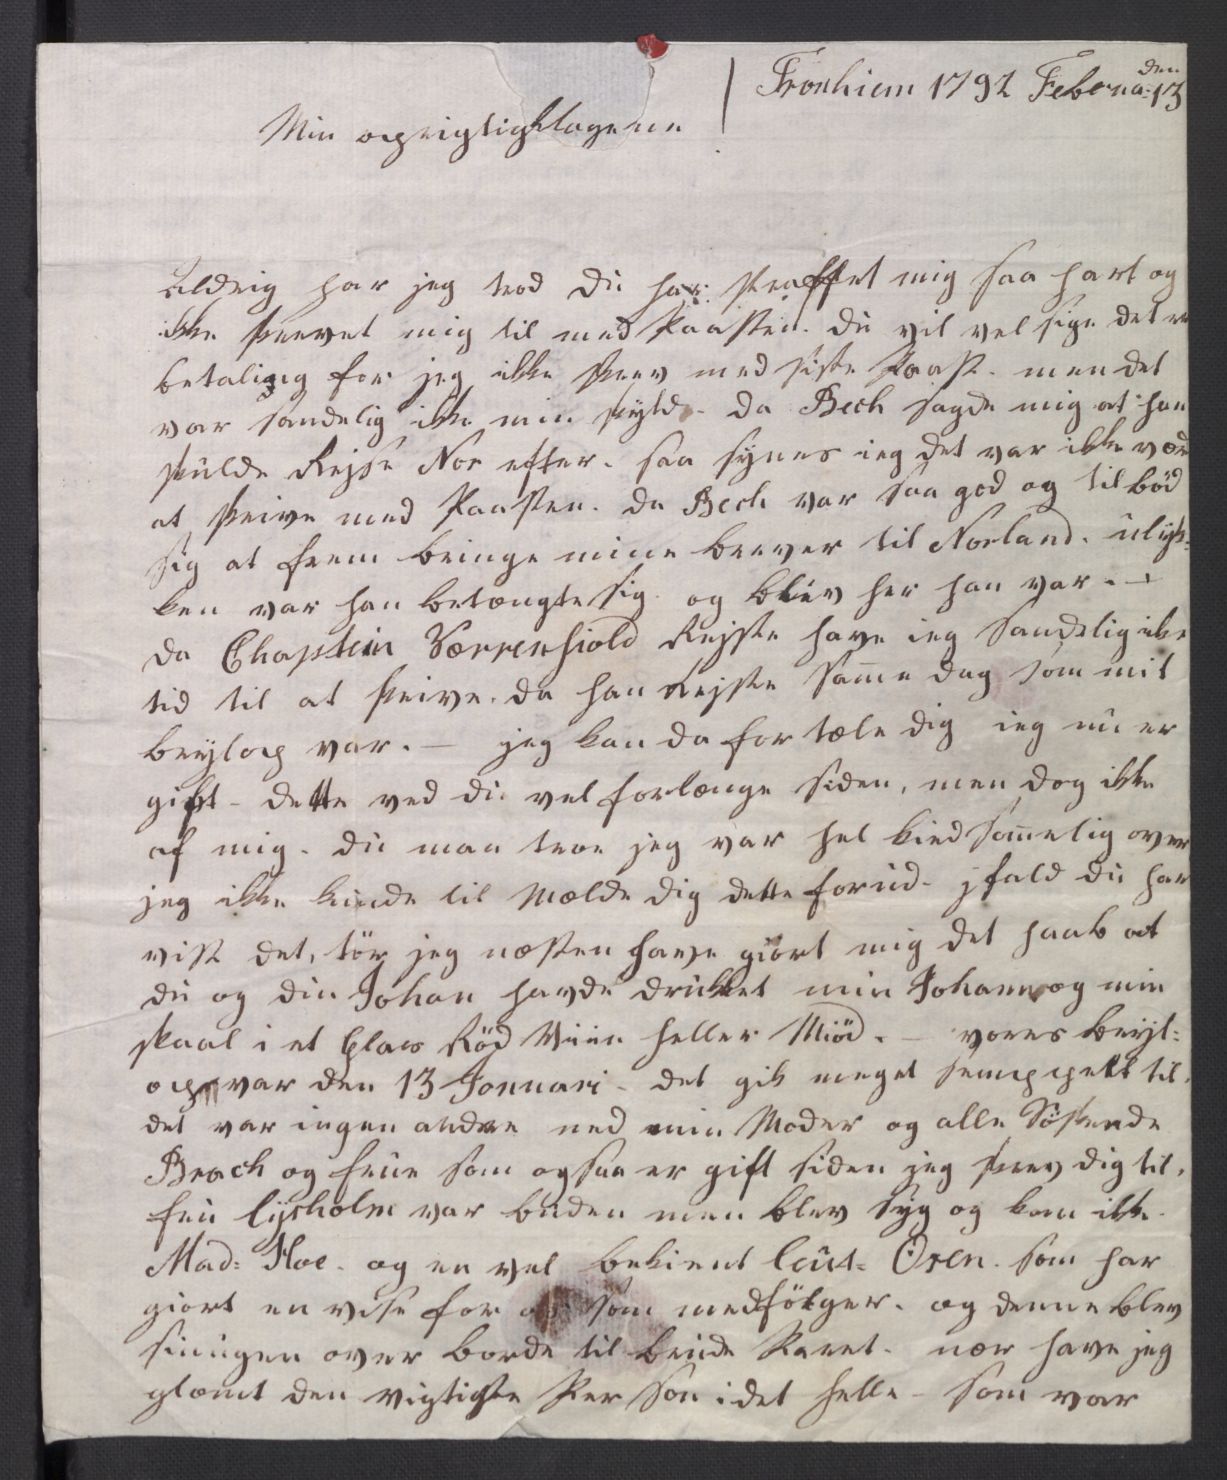 Tronhiem 1792 Februa: den 13
Min oprigtigklagene
Aldrig har jeg trod du har straffet mig saa hart og
ikke skrevet mig til med Paasten. du vil vel sige det er
betaling for jeg ikke skrev med siste Paast. men det
var sandelig ikke min skyld. da Bech sagde mig at han
skulde Rejse Nor efter. saa synes ieg det var ikke værd
at skrive med Paasten. da Bech var saa god og tilbød
sig at frem bringe mine brever til Norland. ulyk=
ken var han betængte sig og blev her han var. —
da Chaptein Sørrenshiold Rejste have ieg sandelig ike
tid til at skrive. da han Rejste samme dag som mit
brylop var. — jeg kan da for tæle dig ieg nu er
gift - dette ved du vel forlænge siden, men dog ikke
af mig. du maa troe jeg var hel kiedsommelig over
jeg ikke kunde til Mælde dig dette forud - jfald du har
vist det, tör jeg næsten have giort mig det haab at
du og din Johan havde drukket min Johann og min
skaal i et Glas Röd Viin heller Miöd. — vores bryl=
op var den 13 Jannuari - det gik meget semppelt til.
det var ingen andre ned min Moder og alle Söskende
Brach og Frue som ogsaa er gift siden jeg skrev dig til.
fru Lysholm var buden men blev syg og kom ikke.
Mad: Hoe. og en vel bekient Leut= Oxen. som har
giort en vise for os som medfölger. og denne blev
siungen over borde til brude Paret. nær have jeg
glæmt den vigtigste Person i det helle - som var